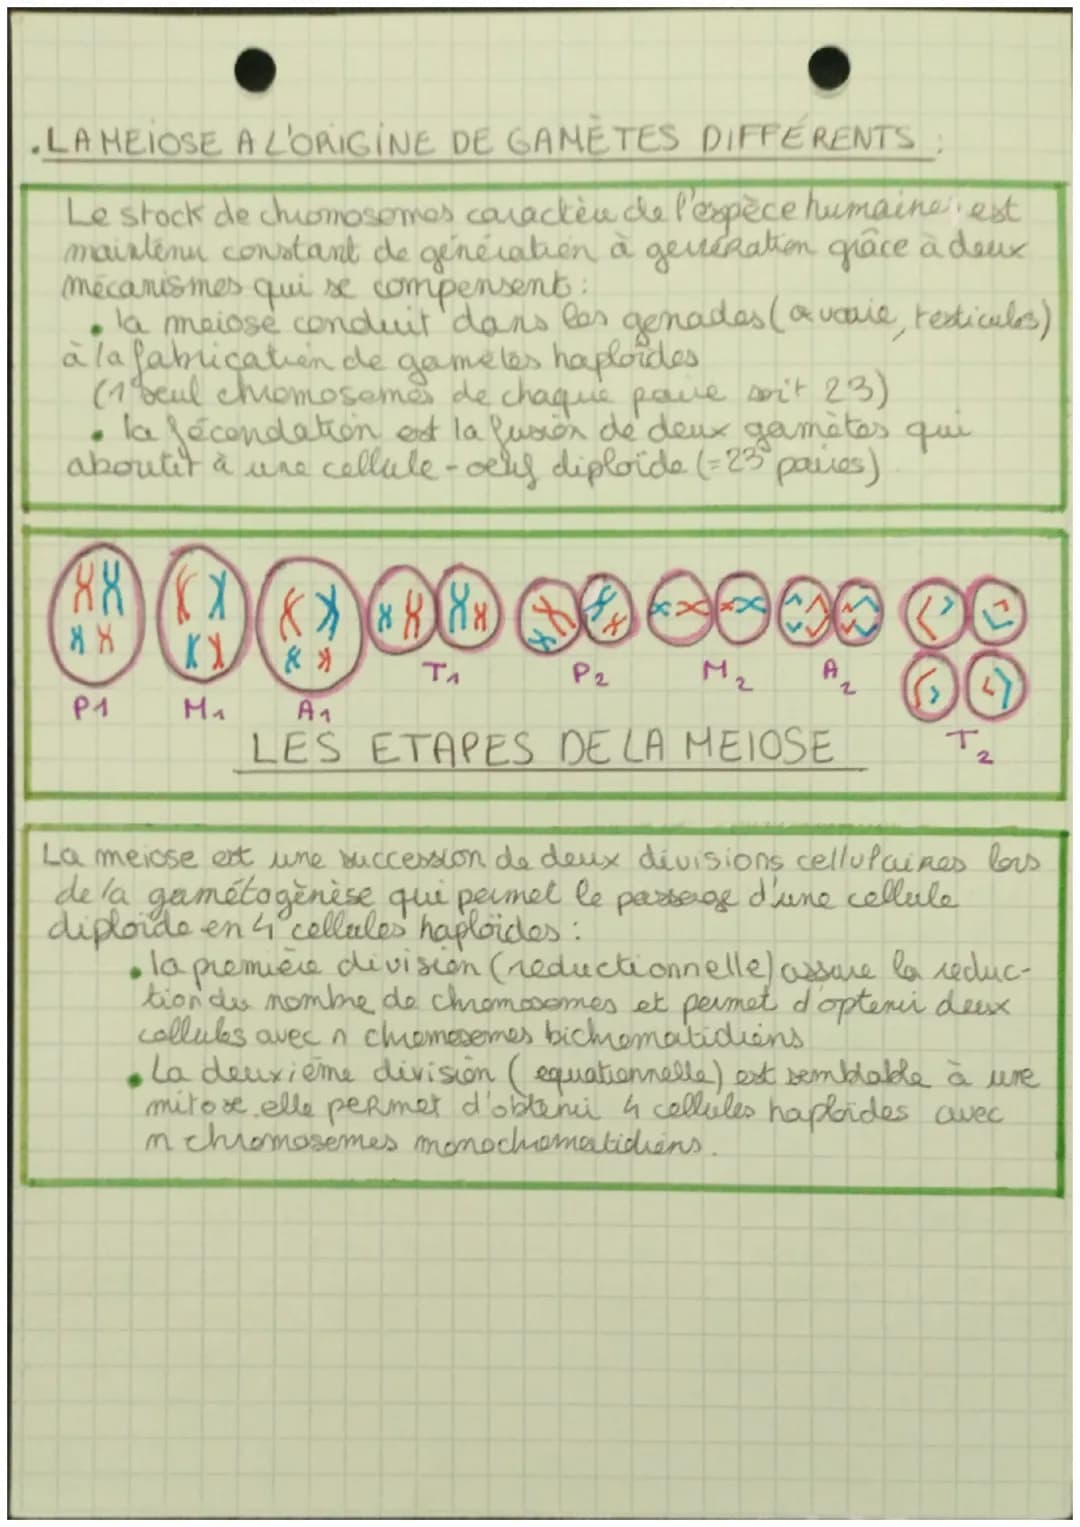 .LA MEIOSE A L'ORIGINE DE GAMÈTES DIFFÉRENTS :
Le stock de chromosomes caractère de l'espèce humaine, est
maintenu constant de génération à génération grâce à deux
mécanismes qui se compensent :
• la meiose conduit dans les genades (ovaire, testicules)
à la fabrication de gamètes haploïdes
(1 seul chromosomes de chaque paire soit 23)
• la fécondation est la fusion de deux gamètes qui
aboutit à une cellule-oeuf diploïde (=23 paires)
P1 M1 A1 T1 P2 M2 A2 T2
LES ETAPES DE LA MEIOSE
La meiose est une succession de deux divisions cellulaires lors
de la gamétogènèse qui permet le passage d'une cellule
diploïde en 4 cellules haploïdes :
• la première division (reductionnelle) assure la reduc-
tion du nombre de chromosomes et permet d'optenir deux
cellules avec n chromosomes bichromatidiens
• La deuxième division (equationnelle) est semblable à une
mitose.elle permet d'obtenir 4 cellules haploïdes avec
n chromosemes monochromatidiens.